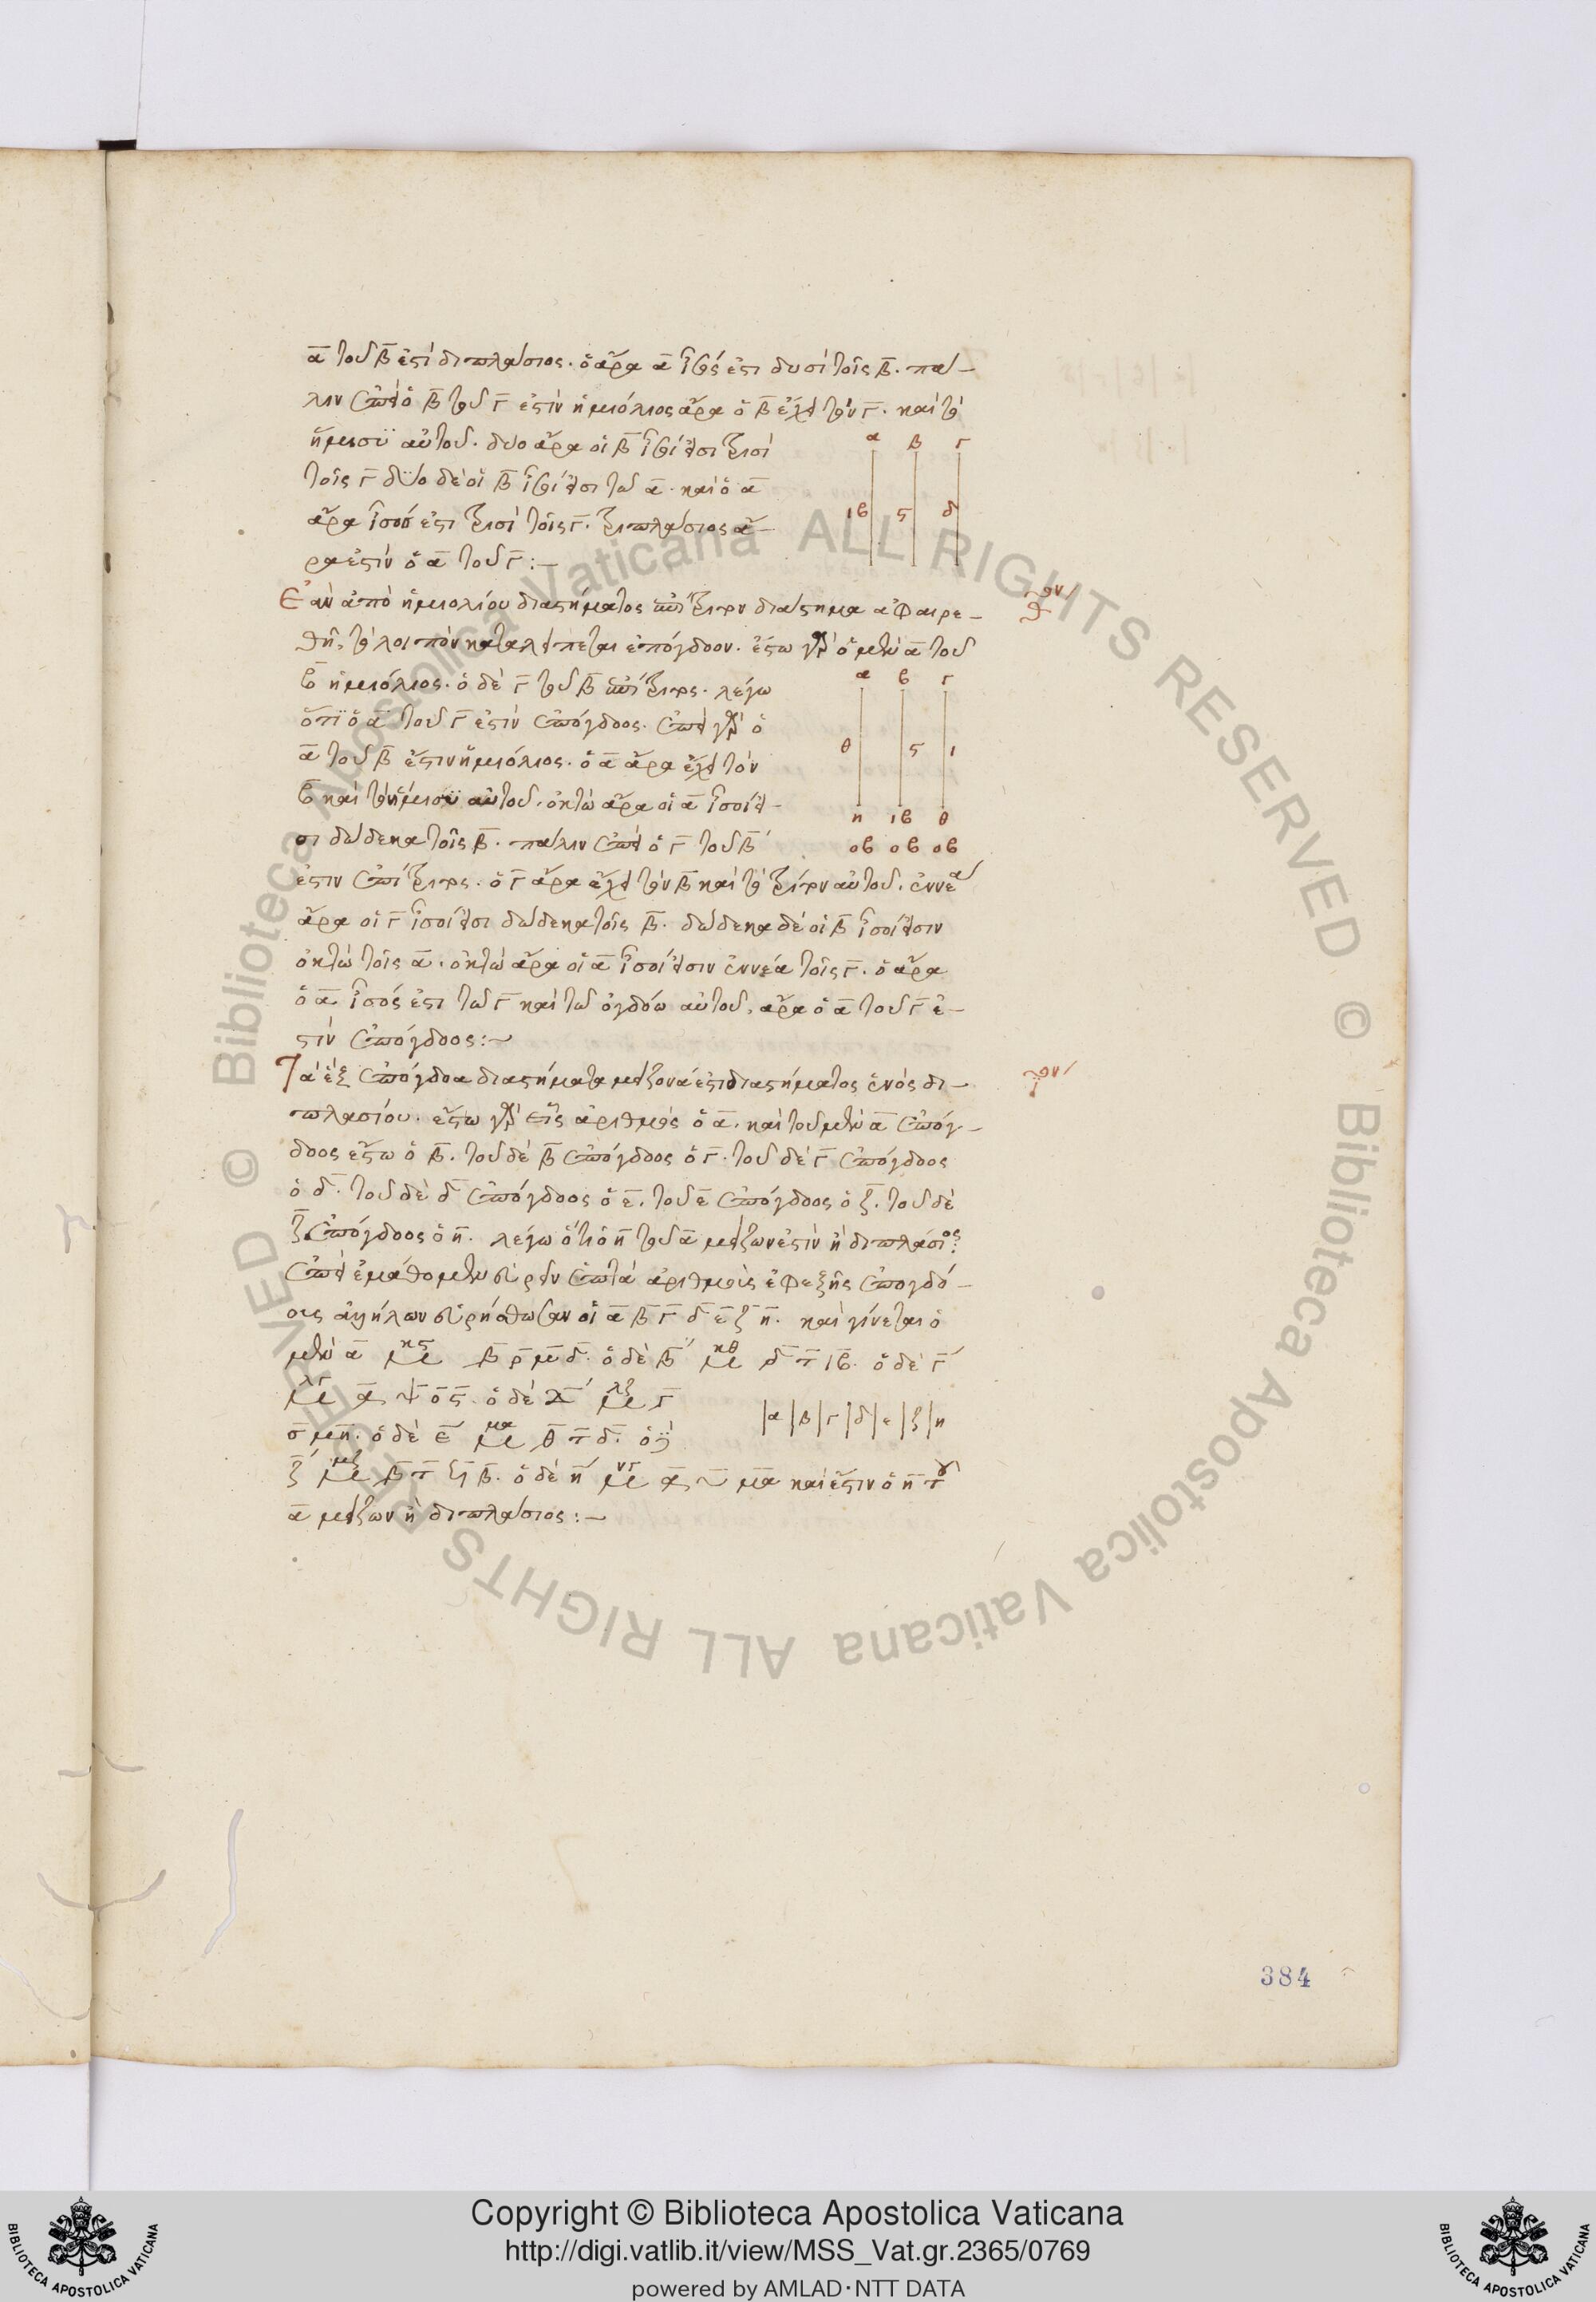 α̅ τοῦ β̅ ἐστὶ διπλάσιος· ὁ ἄρα α̅ ἴσός ἐστι δυσὶ τοῖς β̅. πά-
λιν ἐπεὶ ὁ β̅ τοῦ γ̅ ἐστὶν ἡμιόλιος ἄρα ὁ β̅ ἔχει τὸν γ̅. καὶ τὸ
ἥμισϋ αὐτοῦ. δύο ἄρα οἱ β̅ ἴσοί εἰσι τρισὶ
τοῖς γ̅ δύο δὲ οἱ β̅ ἴσοί εἰσι τῶ α̅. καὶ ὁ α̅
ἄρα ἴσος ἐστι τρισὶ τοῖς γ̅. τριπλάσιος ἄ-
ρα ἐστὶν ὁ α̅ τοῦ γ̅:-
α β γ
ιβ ς δ
Ἐὰν ἀπὸ ἡμιολίου διαστήματος ἐπίτριτον διάστημα ἀφαιρε-
θῆ, τὸ λοιπὸν καταλείπεται ἐπόγδοον. ἔστω γὰρ ὁ μὲν α̅ τοῦ
β̅ ἡμιόλιος. ὁ δὲ γ̅ τοῦ β̅ ἐπίτριτος. λέγω
ὅτϊ ὁ α̅ τοῦ γ̅ ἐστὶν ἐπόγδοος. ἐπεὶ γὰρ ὁ
α̅ τοῦ β̅ ἔστιν ἡμιόλιος. ὁ α̅ ἄρα ἔχει τὸν
β̅ καὶ τὸ ἥμισϋ αὐτοῦ. ὀκτὼ ἄρα οἱ α̅ ἴσοί εἰ-
σι δώδεκα τοῖς β̅. πάλιν ἐπεὶ ὁ γ̅ τοῦ β̅
ἐστιν ἐπίτριτος. ὁ γ̅ ἄρα ἔχει τὸν β̅ καὶ τὸ τρίτον αὐτοῦ. ἐννέα
ἄρα οἱ γ̅ ἴσοί εἰσι δώδεκα τοῖς β̅. δώδεκα δὲ οἱ β̅ ἴσοί εἰσιν
ὀκτὼ τοῖς α̅. ὀκτὼ ἄρα οἱ α̅ ἴσοί εἰσιν ἐννέα τοῖς γ̅. ὁ ἄρα
ὁ α̅ ἴσός ἐστι τῶ γ̅ καὶ τῶ ὀγδόω αὐτοῦ, ἄρα ὁ α̅ τοῦ γ̅ ἐ-
στὶν ἐπόγδοος:~
α β γ
θ ς ι
η ιβ θ
οβ οβ οβ
Τὰ ἓξ ἐπόγδοα διαστήματα μείζονά ἐστι διαστήματος ἑνός δι-
πλασίου. ἔστω γὰρ εἷς ἀριθμὸς ὁ α̅. καὶ τοῦ μὲν α̅ ἐπόγ-
δοος ἔστω ὁ β̅. τοῦ δὲ β̅ ἐπόγδοος ὁ γ̅. τοῦ δὲ γ̅ ἐπόγδοος
ὁ δ̅. τοῦ δὲ δ̅ ἐπόγδοος ὁ ε̅. τοῦ ε̅ ἐπόγδοος ὁ ζ̅. τοῦ δὲ
ζ̅ ἐπόγδοος ὁ η̅. λέγω ὅτι ὁ η̅ τοῦ α̅ μείζων ἐστὶν ἢ διπλάσιος:
ἐπεὶ ἐμάθομεν εὑρεῖν ἑπτὰ ἀριθμοὺς ἐφεξῆς ἐπογδό-
ους ἀλλήλων εὑρήσθωσαν οἱ α̅ β̅ γ̅ δ̅ ε̅ ζ̅ η̅. καὶ γίνεται ὁ
μὲν α̅ κς μυ β̅ ρ̅ μ̅ δ̅. ὁ δὲ β̅ κθ μυ δ̅ τ̅ ιβ̅. ὁ δὲ γ̅
λγ μυ α̅ ψ̅ ο̅ ς̅. ὁ δὲ δ̅ λζ μυ γ̅
σ̅ μ̅η̅. ὁ δὲ ε̅ μα μυ θ̅ τ̅ δ̅. ὁ δὲ
ζ̅ μζ μυ β̅ τ̅ ϟ̅ β̅. ὁ δὲ η̅ νγ μυ α̅ υ̅ μ̅α̅ καὶ ἔστιν ὁ η̅ τοῦ
α̅ μείζων ἢ διπλάσιος:~
|α|β|γ|δ|ε|ζ|η
384
© Biblioteca Apostolica Vaticana ALL RIGHTS RESERVED © Biblioteca Apostolica Vaticana ALL RIGHTS RESERVED
Copyright © Biblioteca Apostolica Vaticana
http://digi.vatlib.it/view/MSS_Vat.gr.2365/0769
powered by AMLAD·NTT DATA
BIBLIOTECA APOSTOLICA VATICANA
BIBLIOTECA APOSTOLICA VATICANA